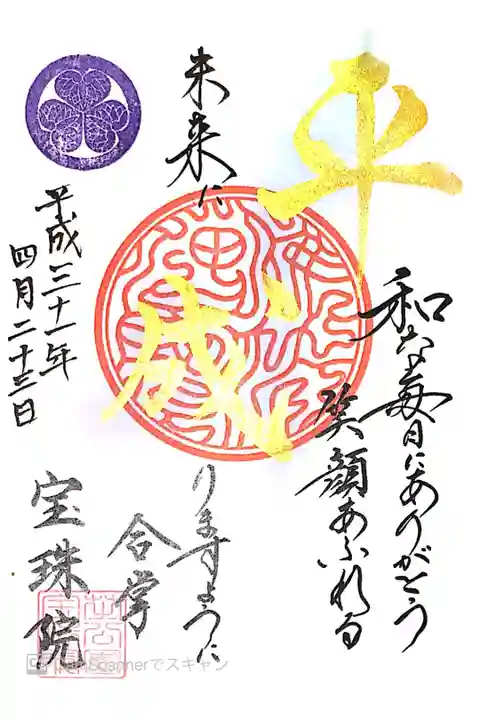 平
和な毎日にありがとう
笑顔あふれる
未来に
成
りますように
合掌
平成三十一年
四月二十三日
宝珠院
CamScannerでスキャン